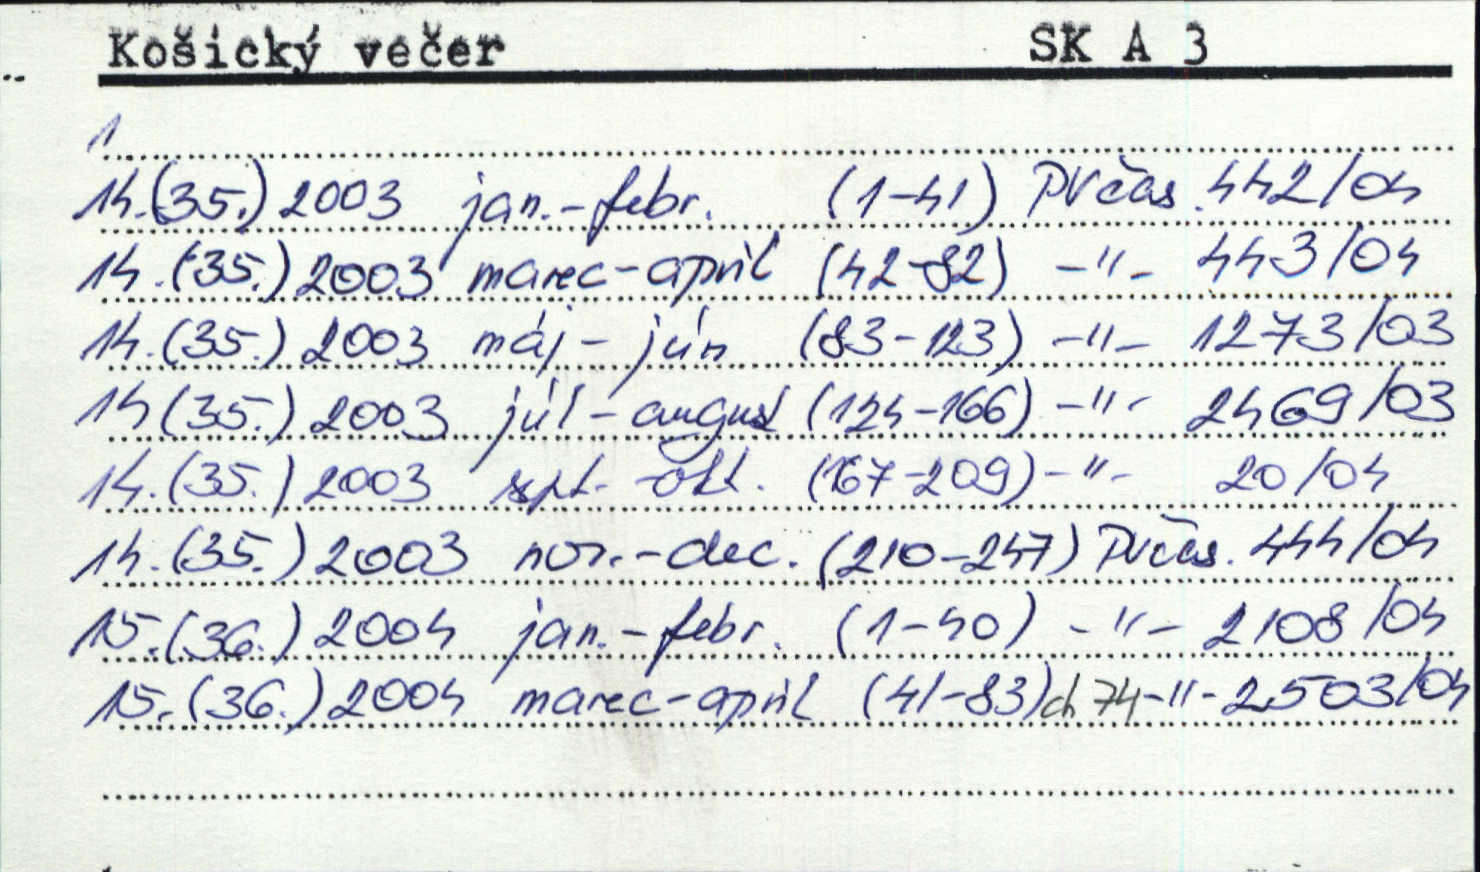 Košický večer SK A 3
1
14.(35.) 2003 jan.-febr. (1-41) PVčas. 442/04
14.(35.) 2003 marec-apríl (42-82) -"- 443/04
14.(35.) 2003 máj- jún (83-123) -"- 1273/03
14(35.) 2003 júl-august (124-166) -"- 2469/03
14.(35.) 2003 spt.-okt. (167-209) -"- 20/04
14.(35.) 2003 nov.-dec. (210-247) PVčas. 444/04
15.(36.) 2004 jan.-febr. (1-40) -"- 2108/04
15.(36.) 2004 marec-apríl (41-83) ch 74 -"- 2503/04